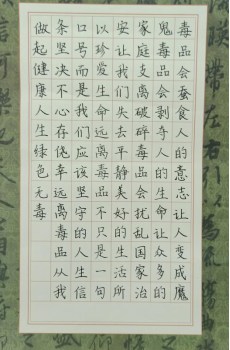 毒品会蚕食人的意志让人变成魔
鬼毒品会剥夺人的生命让众多的
家庭支离破碎毒品会扰乱国家治
安让我们失去平静美好的生活所
以珍爱生命远离毒品不只是一句
口号而是我们应该坚守的人生信
条坚决不心存侥幸远离毒品从我
做起健康人生绿色无毒